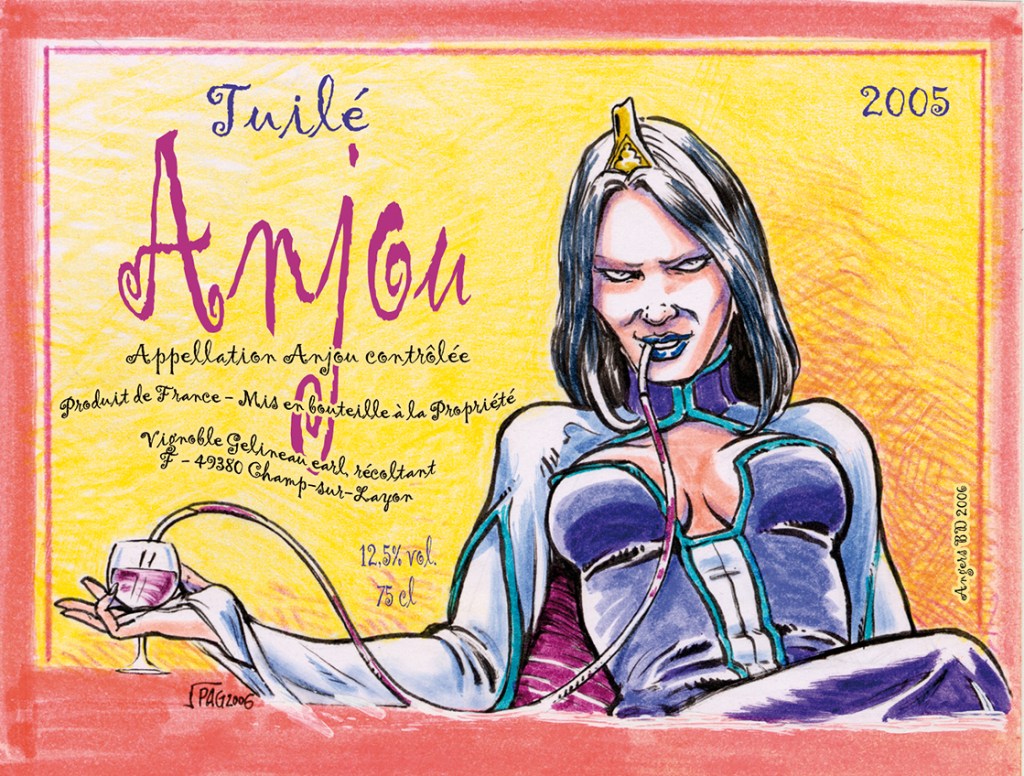 Tuilé
2005
Anjou
Appellation Anjou contrôlée
Produit de France - Mis en bouteille à la Propriété
Vignoble Gelineau earl, récoltant
F - 49380 Champ-sur-Layon
12,5% vol.
75 cl
Angers BD 2006
SPAG2006